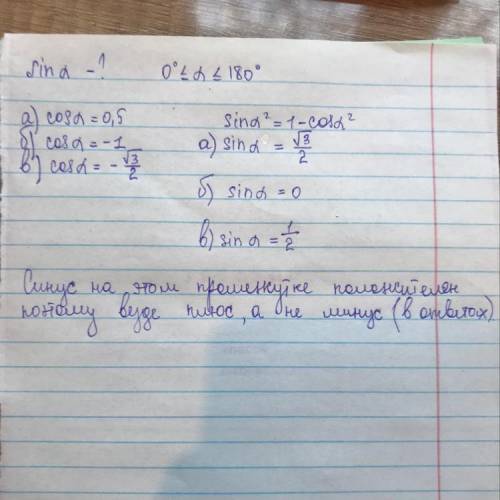 sin α - ? 0° ≤ α ≤ 180°
а) cos α = 0,5
б) cos α = -1
в) cos α = -√3/2
sin α² = 1 - cos α²
а) sin α = √3/2
б) sin α = 0
в) sin α = 1/2
Синус на этом промежутке положителен
поэтому везде плюс, а не минус (в ответах)